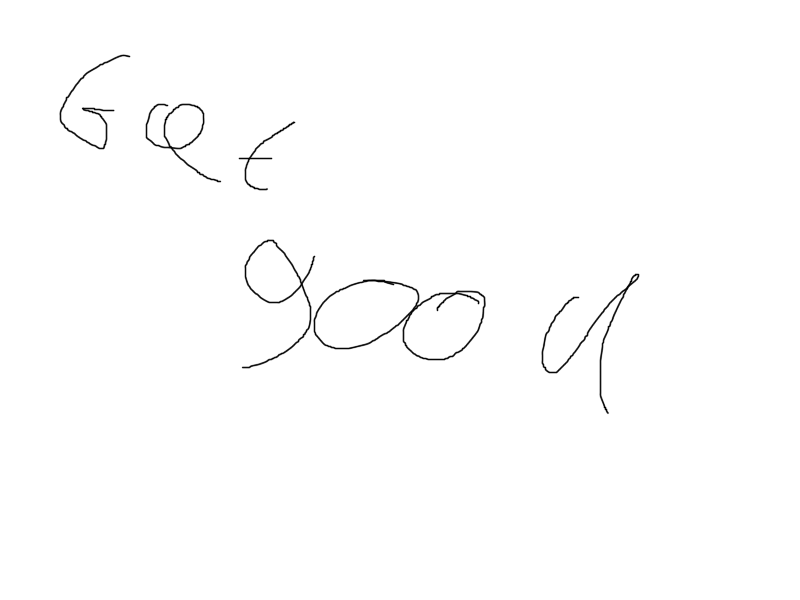 Gat
good